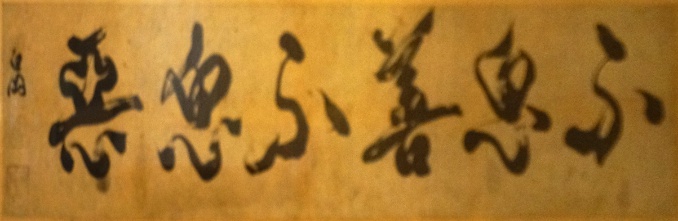 不思善不思惡